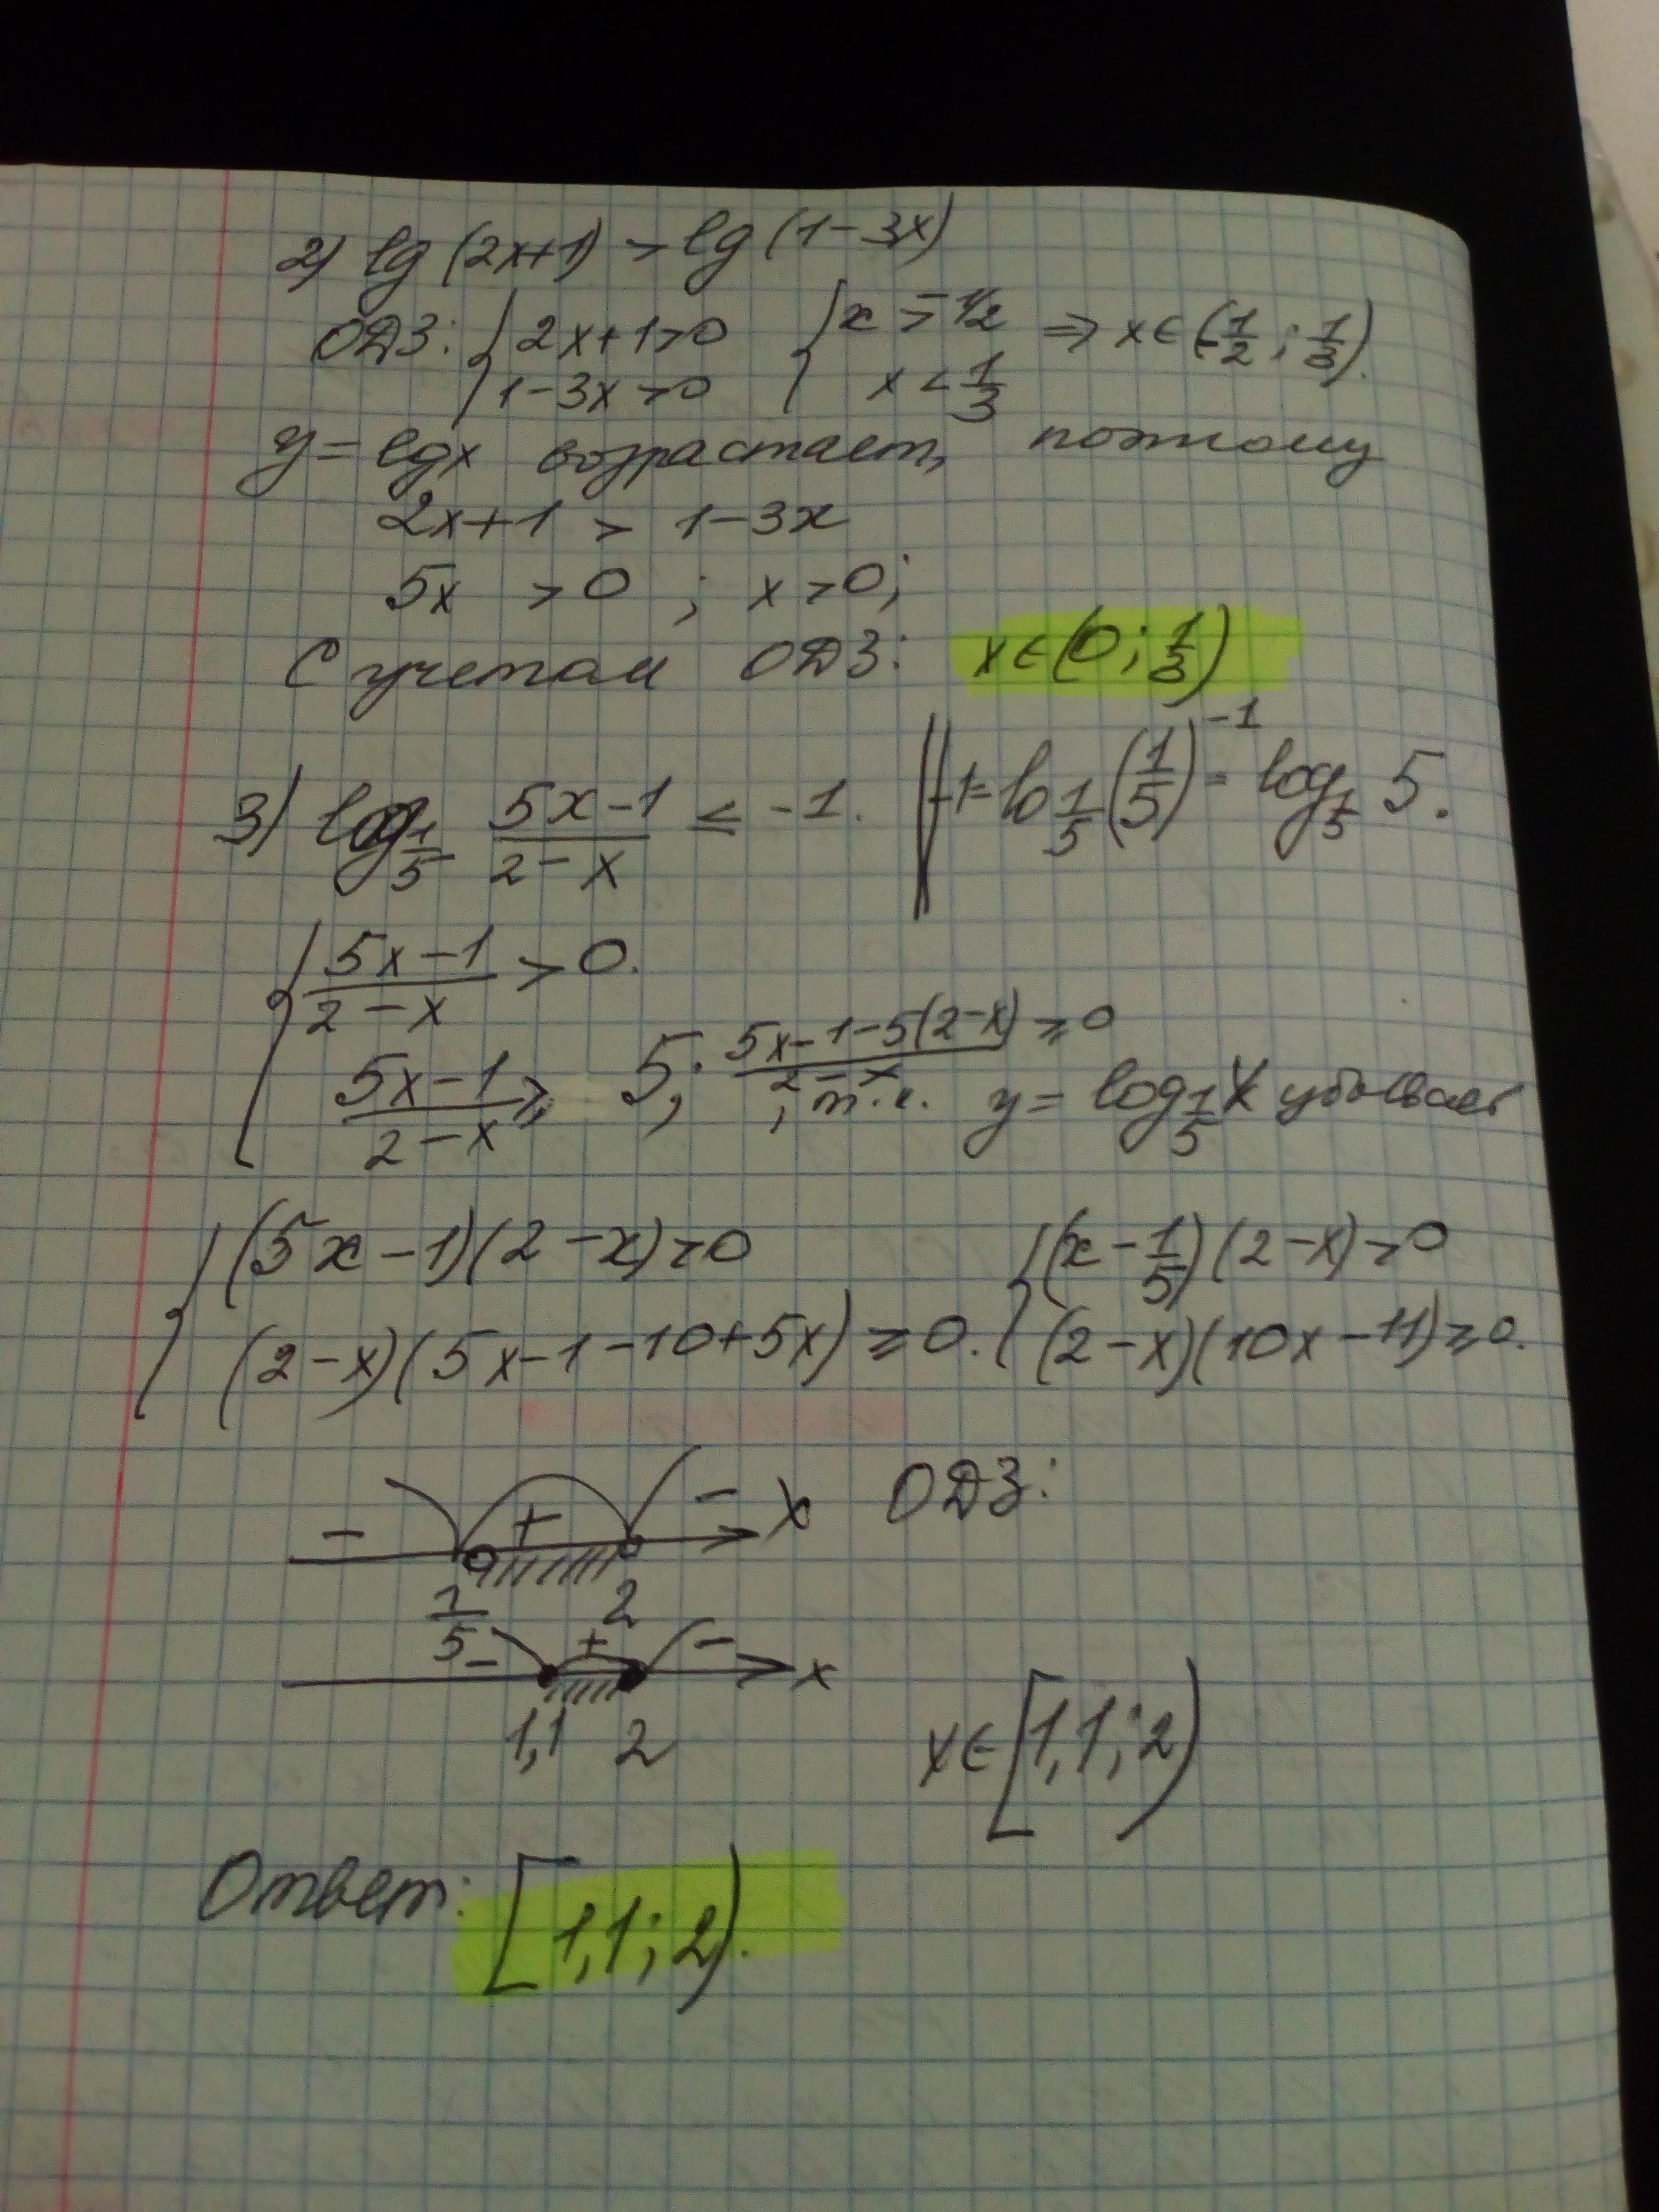 2) lg(2x+1) > lg(1-3x)
ОДЗ: { 2x+1>0 { x > -1/2 ⇒ x∈(-1/2; 1/3).
1-3x>0 x < 1/3
y = lgx возрастает, поэтому
2x+1 > 1-3x
5x > 0 ; x>0;
С учетом ОДЗ: x∈(0; 1/3)
3) log_{1/5} (5x-1)/(2-x) ≤ -1. || -1 = lo_{1/5} (1/5)^{-1} = log_{1/5} 5.
{ (5x-1)/(2-x) > 0.
(5x-1)/(2-x) ≥ 5; (5x-1-5(2-x))/(2-x) ≥ 0
, т.к. y = log_{1/5} x убывает
{ (5x-1)(2-x)>0 { (x-1/5)(2-x)>0
(2-x)(5x-1-10+5x) ≥ 0. (2-x)(10x-11) ≥ 0.
- + - x ОДЗ:
1/5 2
- + - x
1,1 2 x∈[1,1; 2)
Ответ: [1,1; 2).